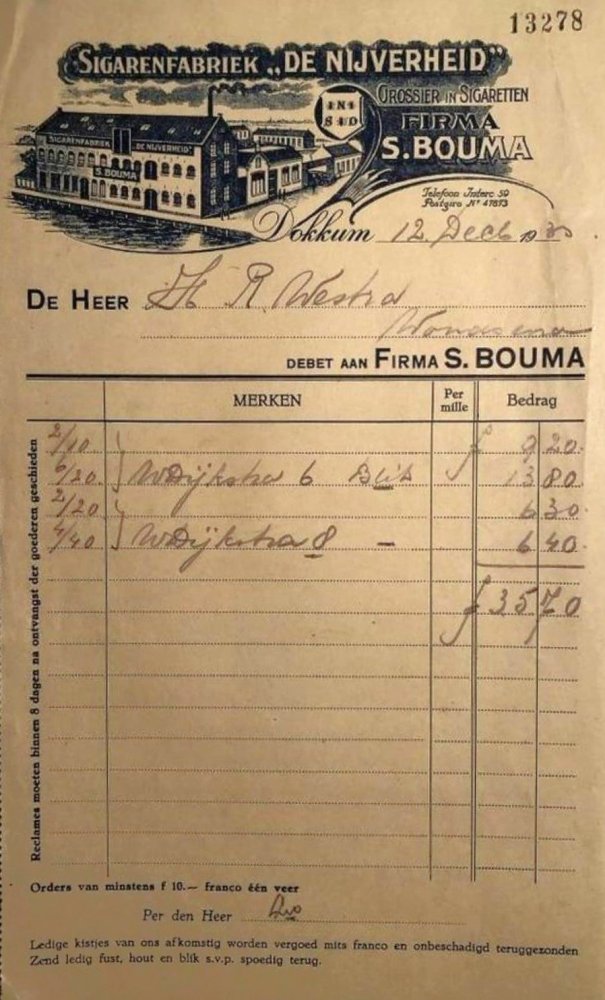 13278
SIGARENFABRIEK „DE NIJVERHEID"
GROSSIER IN SIGARETTEN
FIRMA
S. BOUMA
SIGARENFABRIEK „DE NIJVERHEID"
S. BOUMA
Telefoon Interc 59
Postgiro Nº 47873
Dokkum 12 Dec 19
DE HEER R. Westra
DEBET AAN FIRMA S. BOUMA
MERKEN Per mille Bedrag
2/10 f 9 20
6/20 WDijkstra 6 Blik 13 80
2/20 6 30
4/40 WDijkstra 8 - 6 40
f 35 70
Reclames moeten binnen 8 dagen na ontvangst der goederen geschieden
Orders van minstens f 10.— franco één veer
Per den Heer
Ledige kistjes van ons afkomstig worden vergoed mits franco en onbeschadigd teruggezonden
Zend ledig fust, hout en blik s.v.p. spoedig terug.